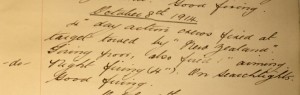 Good firing.
October 8th 1914.
4" day action crews fired at
target towed by "New Zealand"
firing from, also field aiming
-do- Night firing (4"). On Searchlights
Good firing.